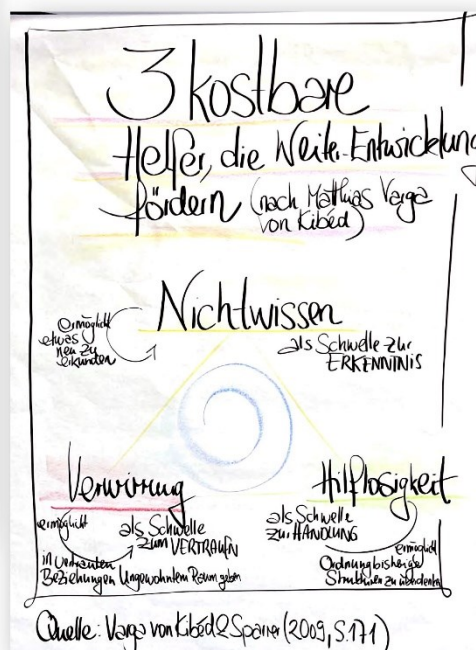 3 kostbare
Helfer, die Weiter-Entwicklung
fördern (nach Matthias Varga
von Kibéd)
Nichtwissen
ermöglicht
etwas
neu zu
erkunden
als Schwelle zur
ERKENNTNIS
Verwirrung
ermöglicht
als Schwelle
zum VERTRAUEN
in vertrauten
Beziehungen Ungewohntem Raum geben
Hilflosigkeit
als Schwelle
zur HANDLUNG
ermöglicht
Ordnung bisheriger
Strukturen zu überdenken
Quelle: Varga von Kibéd & Sparrer (2009, S.171)